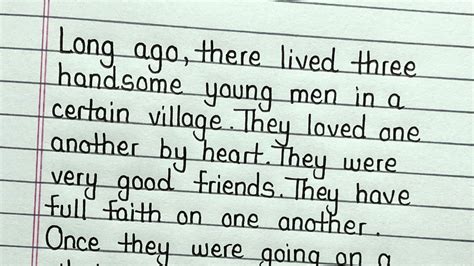 Long ago, there lived three
handsome young men in a
certain village. They loved one
another by heart. They were
very good friends. They have
full faith on one another.
Once they were going on a